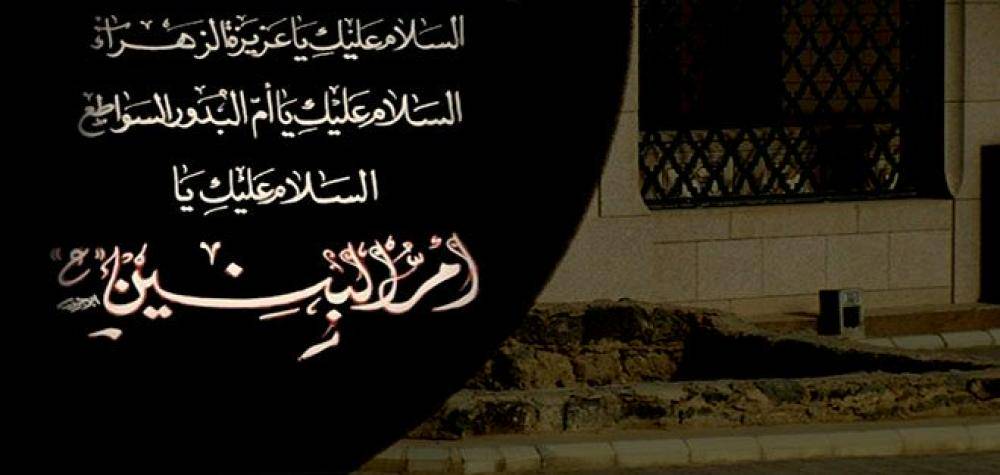 السلام عليكِ يا عزيزة الزهراء
السلام عليكِ يا أمّ البدور السواطع
السلام عليكِ يا
أم البنين «ع»